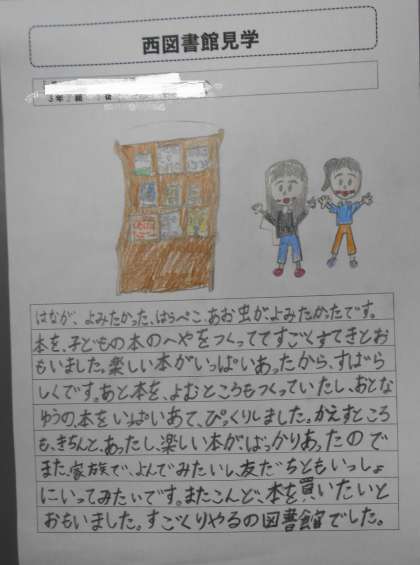 西図書館見学
3年 組
はなが、よみたかった、はらぺこ、あお虫が、よみたかったです。
本を、子どもの本のへやをつくっててすごくすてきとお
もいました。楽しい本がいっぱいあったから、すばら
しくです。あと本を、よむところもつくっていたし、おとな
ゆうの、本をいっぱいあて、びっくりしました。かえすところ
も、きちんと、あったし、楽しい本が、ばっかりあったので
また、家族で、よんでみたいし、友だちともいっしょ
にいってみたいです。またこんど、本を買いたいと
おもいました。すごくりやるの図書館でした。